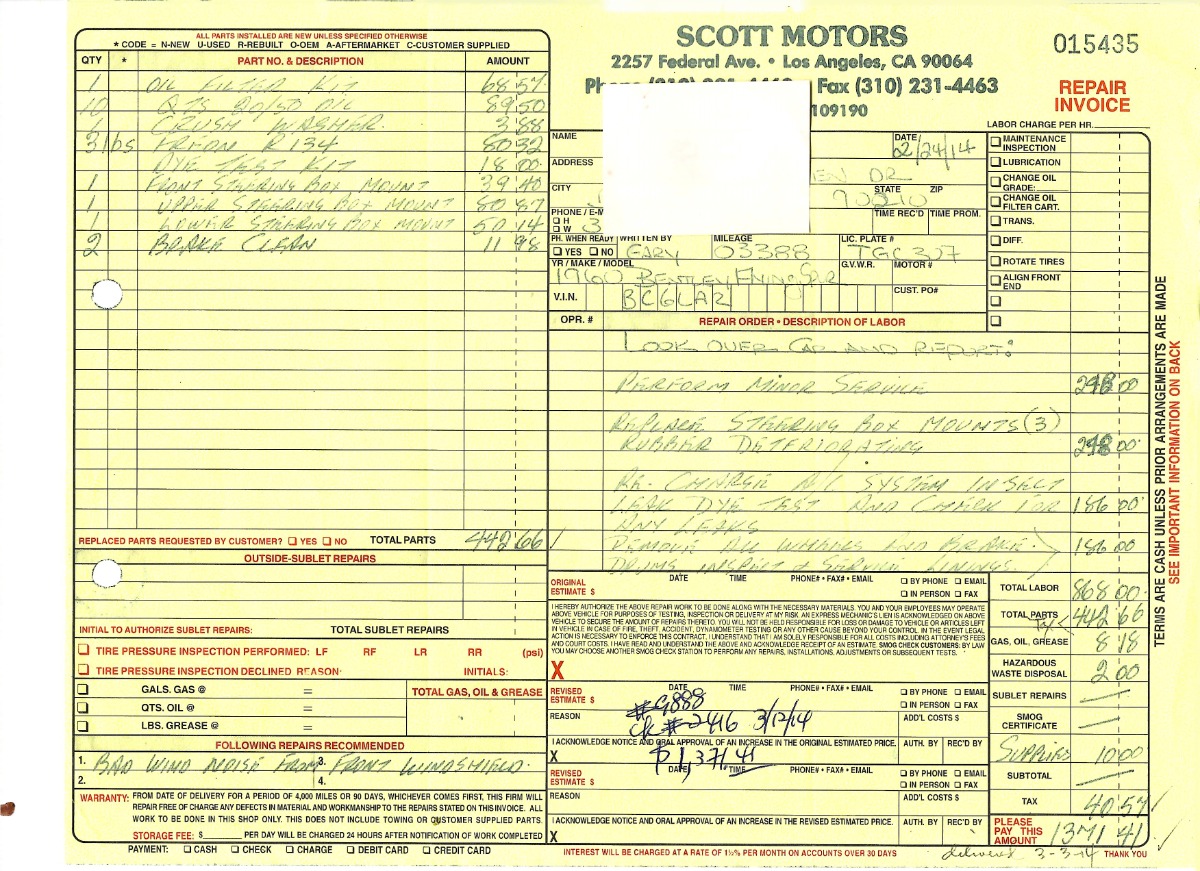 ALL PARTS INSTALLED ARE NEW UNLESS SPECIFIED OTHERWISE
* CODE = N-NEW U-USED R-REBUILT O-OEM A-AFTERMARKET C-CUSTOMER SUPPLIED
QTY * PART NO. & DESCRIPTION AMOUNT
1 OIL FILTER KIT 68 57
10 QTS 20/50 OIL 89 50
1 CRUSH WASHER 3 88
3 lbs FREON R134 80 32
DYE TEST KIT 18 00
1 FRONT STEERING BOX MOUNT 39 40
1 UPPER STEERING BOX MOUNT 80 87
1 LOWER STEERING BOX MOUNT 50 14
2 BRAKE CLEAN 11 98
REPLACED PARTS REQUESTED BY CUSTOMER? YES NO TOTAL PARTS 442 66
OUTSIDE-SUBLET REPAIRS
INITIAL TO AUTHORIZE SUBLET REPAIRS: TOTAL SUBLET REPAIRS
TIRE PRESSURE INSPECTION PERFORMED: LF RF LR RR (psi)
TIRE PRESSURE INSPECTION DECLINED REASON: INITIALS:
GALS. GAS @ = TOTAL GAS, OIL & GREASE
QTS. OIL @ =
LBS. GREASE @ =
FOLLOWING REPAIRS RECOMMENDED
1. BAD WIND NOISE FROM 3. FRONT WINDSHIELD.
2. 4.
WARRANTY: FROM DATE OF DELIVERY FOR A PERIOD OF 4,000 MILES OR 90 DAYS, WHICHEVER COMES FIRST, THIS FIRM WILL
REPAIR FREE OF CHARGE ANY DEFECTS IN MATERIAL AND WORKMANSHIP TO THE REPAIRS STATED ON THIS INVOICE. ALL
WORK TO BE DONE IN THIS SHOP ONLY. THIS DOES NOT INCLUDE TOWING OR CUSTOMER SUPPLIED PARTS.
STORAGE FEE: $ PER DAY WILL BE CHARGED 24 HOURS AFTER NOTIFICATION OF WORK COMPLETED
PAYMENT: CASH CHECK CHARGE DEBIT CARD CREDIT CARD
SCOTT MOTORS
2257 Federal Ave. • Los Angeles, CA 90064
Fax (310) 231-4463
109190
015435
REPAIR
INVOICE
LABOR CHARGE PER HR.
NAME DATE 2/24/14
ADDRESS DR
CITY STATE ZIP 90210
PHONE / E-M TIME REC'D TIME PROM.
H
W 3
PH. WHEN READY WRITTEN BY MILEAGE LIC. PLATE #
YES NO GARY 03388 TGC 307
YR / MAKE / MODEL G.V.W.R. MOTOR #
1960 BENTLEY
V.I.N. BC6LAR CUST. PO#
MAINTENANCE INSPECTION
LUBRICATION
CHANGE OIL GRADE:
CHANGE OIL FILTER CART.
TRANS.
DIFF.
ROTATE TIRES
ALIGN FRONT END
OPR. # REPAIR ORDER • DESCRIPTION OF LABOR
LOOK OVER CAR AND REPORT:
PERFORM MINOR SERVICE 248 00
REPLACE STEERING BOX MOUNTS (3)
RUBBER DETERIORATING 248 00
RE-CHARGE A/C SYSTEM INSECT
LEAK DYE TEST AND CHECK FOR 186 00
ANY LEAKS
REMOVE ALL WHEELS AND BRAKE 186 00
DRUMS INSPECT & SERVICE LININGS.
ORIGINAL ESTIMATE $ DATE TIME PHONE# • FAX# • EMAIL BY PHONE EMAIL IN PERSON FAX
I HEREBY AUTHORIZE THE ABOVE REPAIR WORK TO BE DONE ALONG WITH THE NECESSARY MATERIALS. YOU AND YOUR EMPLOYEES MAY OPERATE
ABOVE VEHICLE FOR PURPOSES OF TESTING, INSPECTION OR DELIVERY AT MY RISK. AN EXPRESS MECHANIC'S LIEN IS ACKNOWLEDGED ON ABOVE
VEHICLE TO SECURE THE AMOUNT OF REPAIRS THERETO. YOU WILL NOT BE HELD RESPONSIBLE FOR LOSS OR DAMAGE TO VEHICLE OR ARTICLES LEFT
IN VEHICLE IN CASE OF FIRE, THEFT, ACCIDENT, DYNAMOMETER TESTING OR ANY OTHER CAUSE BEYOND YOUR CONTROL. IN THE EVENT LEGAL
ACTION IS NECESSARY TO ENFORCE THIS CONTRACT, I UNDERSTAND THAT I AM SOLELY RESPONSIBLE FOR ALL COSTS INCLUDING ATTORNEY'S FEES
AND COURT COSTS. I HAVE READ AND UNDERSTAND THE ABOVE AND ACKNOWLEDGE RECEIPT OF AN ESTIMATE. SMOG CHECK CUSTOMERS: BY LAW
YOU MAY CHOOSE ANOTHER SMOG CHECK STATION TO PERFORM ANY REPAIRS, INSTALLATIONS, ADJUSTMENTS OR SUBSEQUENT TESTS.
X
REVISED ESTIMATE $ DATE TIME PHONE# • FAX# • EMAIL BY PHONE EMAIL IN PERSON FAX
#9888
REASON ADD'L COSTS $
CK #-2416 3/12/14
I ACKNOWLEDGE NOTICE AND ORAL APPROVAL OF AN INCREASE IN THE ORIGINAL ESTIMATED PRICE. AUTH. BY REC'D BY
X $1,371.41
REVISED ESTIMATE $ DATE TIME PHONE# • FAX# • EMAIL BY PHONE EMAIL IN PERSON FAX
REASON ADD'L COSTS $
I ACKNOWLEDGE NOTICE AND ORAL APPROVAL OF AN INCREASE IN THE REVISED ESTIMATED PRICE. AUTH. BY REC'D BY
X
INTEREST WILL BE CHARGED AT A RATE OF 1½% PER MONTH ON ACCOUNTS OVER 30 DAYS
TOTAL LABOR 868 00
TOTAL PARTS 442 66
GAS, OIL, GREASE 8 18
HAZARDOUS WASTE DISPOSAL 2 00
SUBLET REPAIRS
SMOG CERTIFICATE
SUPPLIES 10 00
SUBTOTAL
TAX 40 57
PLEASE PAY THIS AMOUNT 1371 41
3-3-14 THANK YOU
TERMS ARE CASH UNLESS PRIOR ARRANGEMENTS ARE MADE
SEE IMPORTANT INFORMATION ON BACK